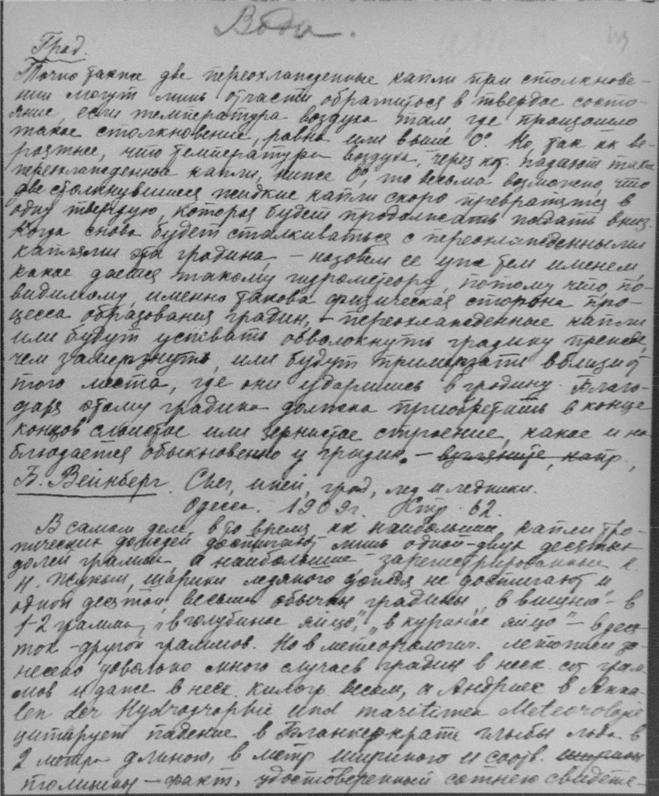 Вода.
Град.
Точно также две переохлажденные капли при столкнове-
нии могут лишь отчасти обратиться в твердое состо-
яние, если температура воздуха там, где произошло
такое столкновение, равна или выше 0°. Но, так как ве-
роятнее, что температура воздуха, через кот. падают такие
переохлажденные капли, ниже 0°, то весьма возможно, что
две столкнувшиеся жидкие капли скоро превратятся в
одну твердую, которая будет продолжать падать вниз.
Когда снова будет сталкиваться с переохлажденными
каплями эта градина, – назовем ее уже тем именем,
какое дается такому гидрометеору, потому что, по-
видимому, именно такова физическая сторона про-
цесса образования градин, – переохлажденные капли
или будут успевать обволокнуть градину прежде,
чем замерзнуть, или будут примерзать вблизи
того места, где они ударились в градину. Благо-
даря этому градина должна приобретать в конце
концов слоистое или зернистое строение, какое и на-
блюдается обыкновенно у градин. –
Б. Вейнберг. Снег, иней, град, лед и ледники.
Одесса. 1909г. Стр. 62.
В самом деле в то время как наибольшие капли тро-
пических дождей достигают лишь одной-двух десятых
долей грамма, а наибольшие зарегистрированные
Н. Жуком, шарики ледяного дождя не достигают и
одной десятой, весьма обычны градины „в вишню" – в
1-2 грамма, „в голубиное яйцо", „в куриное яйцо" – в деся-
ток-другой граммов. Но в метеорологич. летописи за-
несено довольно много случаев градин в неск. сот грам-
мов и даже в неск. килогр. весом, а Андриес в Anna-
len der Hydrographie und maritimen Meteorologie
цитирует падение в глыбы льда в
2 метра длиною, в метр шириною и соотв.
толщины – факт, удостоверенный сотнею свидете-